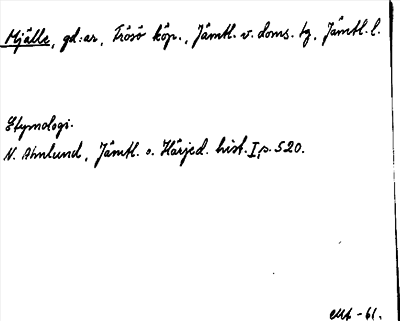 Mjälle, gd:ar, Frösö köp., Jämtl. v. doms. tg, Jämtl. l.
Etymologi.
N. Ahnlund, Jämtl. o. Härjed. hist. I, s. 520.
-61.